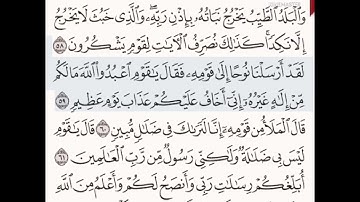 وَٱلْبَلَدُ ٱلطَّيِّبُ يَخْرُجُ نَبَاتُهُۥ بِإِذْنِ رَبِّهِۦ وَٱلَّذِى خَبُثَ لَا يَخْرُجُ
إِلَّا نَكِدًا ۚ كَذَٰلِكَ نُصَرِّفُ ٱلْـَٔايَـٰتِ لِقَوْمٍ يَشْكُرُونَ ٥٨
لَقَدْ أَرْسَلْنَا نُوحًا إِلَىٰ قَوْمِهِۦ فَقَالَ يَـٰقَوْمِ ٱعْبُدُوا۟ ٱللَّهَ مَا لَكُم
مِّنْ إِلَـٰهٍ غَيْرُهُۥٓ إِنِّىٓ أَخَافُ عَلَيْكُمْ عَذَابَ يَوْمٍ عَظِيمٍ ٥٩
قَالَ ٱلْمَلَأُ مِن قَوْمِهِۦٓ إِنَّا لَنَرَىٰكَ فِى ضَلَـٰلٍ مُّبِينٍ ٦٠ قَالَ يَـٰقَوْمِ
لَيْسَ بِى ضَلَـٰلَةٌ وَلَـٰكِنِّى رَسُولٌ مِّن رَّبِّ ٱلْعَـٰلَمِينَ ٦١
أُبَلِّغُكُمْ رِسَـٰلَـٰتِ رَبِّى وَأَنصَحُ لَكُمْ وَأَعْلَمُ مِنَ ٱللَّهِ